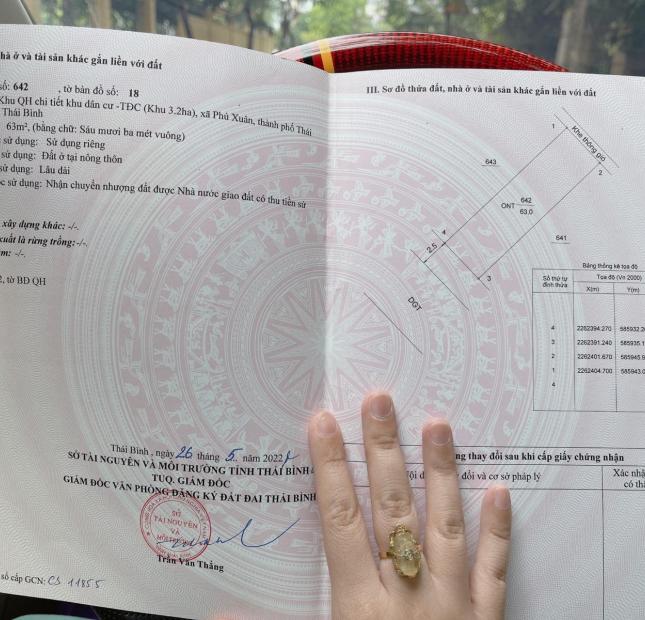 hà ở và tài sản khác gắn liền với đất
số: 642 , tờ bản đồ số: 18
Khu QH chi tiết khu dân cư -TĐC (Khu 3.2ha), xã Phú Xuân, thành phố Thái
Thái Bình
63m², (bằng chữ: Sáu mươi ba mét vuông)
sử dụng: Sử dụng riêng
sử dụng: Đất ở tại nông thôn
sử dụng: Lâu dài
ốc sử dụng: Nhận chuyển nhượng đất được Nhà nước giao đất có thu tiền sử
xây dựng khác: -/-.
xuất là rừng trồng:-/-.
m: -/-.
2, tờ BĐ QH
Thái Bình, ngày 26 tháng 5 năm 2022
SỞ TÀI NGUYÊN VÀ MÔI TRƯỜNG TỈNH THÁI BÌNH
TUQ. GIÁM ĐỐC
GIÁM ĐỐC VĂN PHÒNG ĐĂNG KÝ ĐẤT ĐAI THÁI BÌNH
SỞ
TÀI NGUYÊN
VÀ
MÔI TRƯỜNG
Trần Văn Thắng
số cấp GCN: CS 11855
III. Sơ đồ thửa đất, nhà ở và tài sản khác gắn liền với đất
1
Khe thông gió
2
643
ONT 642
63.0
641
4
2.5
3
DGT
Bảng thống kê tọa độ
Số thứ tự
đỉnh thửa
Tọa độ (Vn 2000)
X(m) Y(m)
4 2262394.270 585932.2
3 2262391.240 585935.1
2 2262401.670 585945.9
1 2262404.700 585943.0
4
ng thay đổi sau khi cấp giấy chứng nhận
Nội d đổi và cơ sở pháp lý
Xác nhậ
có th